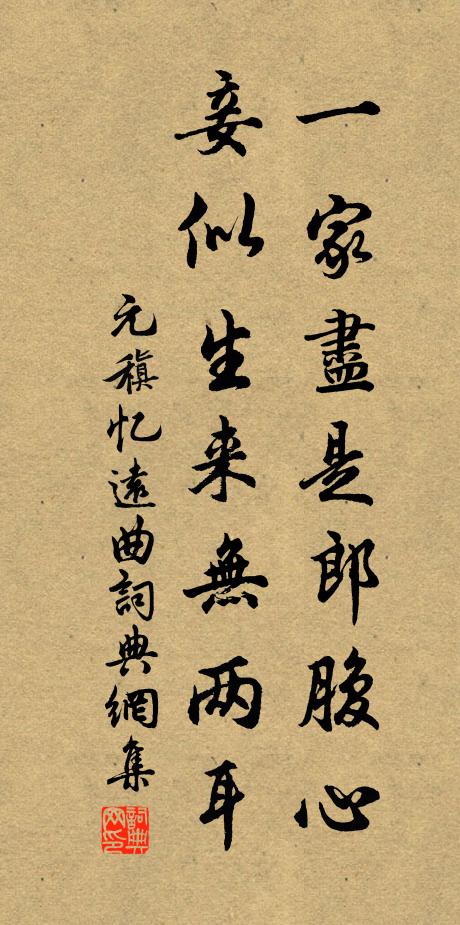 一家盡是郎腹心
妾似生来無两耳
元稹忆遠曲詞典網集